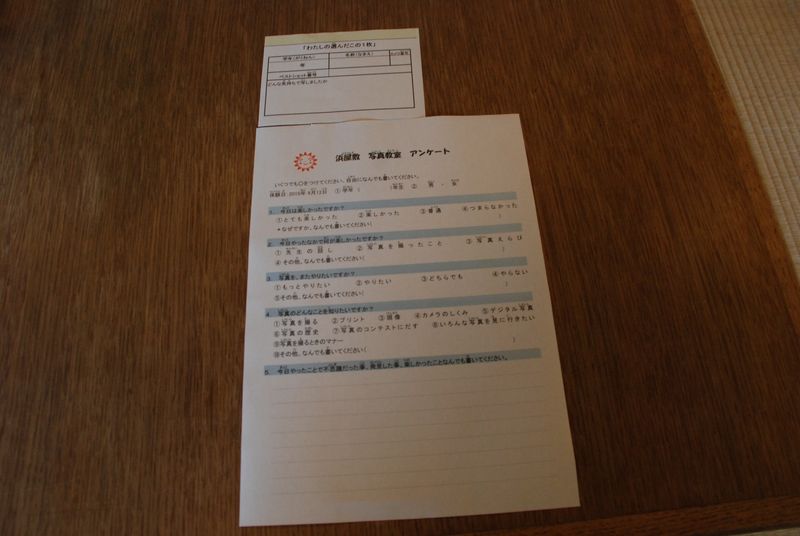 「わたしの選んだこの1枚」
学年(がくねん) 名前(なまえ) カメラ番号
年
ベストショット番号
どんな気持ちで写しましたか
浜屋敷 写真教室 アンケート
いくつでも○をつけてください。自由になんでも書いてください。
体験日 2015年 9月12日 ①学年( )年生 ② 男 ・ 女
1. 今日は楽しかったですか？
①とても楽しかった ②楽しかった ③普通 ④つまらなかった
*なぜですか。なんでも書いてください( )
2. 今日やったなかで何が楽しかったですか？
①先生の話し ②写真を撮ったこと ③写真えらび
④その他、なんでも書いてください( )
3. 写真を、またやりたいですか？
①もっとやりたい ②やりたい ③どちらでも ④やらない
⑤その他、なんでも書いてください( )
4. 写真のどんなことを知りたいですか？
①写真を撮る ②プリント ③現像 ④カメラのしくみ ⑤デジタル写真
⑥写真の歴史 ⑦写真のコンテストにだす ⑧いろんな写真を見に行きたい
⑨写真を撮るときのマナー
⑩その他、なんでも書いてください( )
5. 今日やったことで不思議だった事、発見した事、楽しかったことなんでも書いてください。